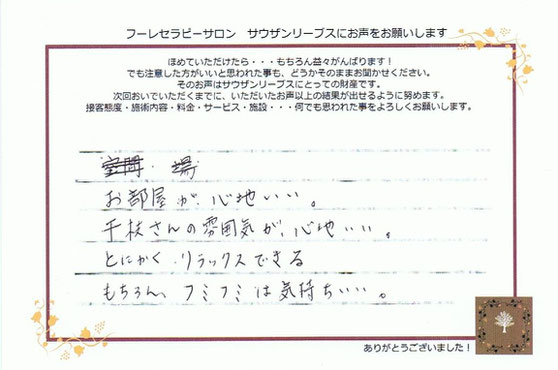 フーレセラピーサロン　サウザンリーブスにお声をお願いします
ほめていただけたら・・・もちろん益々がんばります！
でも注意した方がいいと思われた事も、どうかそのままお聞かせください。
そのお声はサウザンリーブスにとっての財産です。
次回おいでいただくまでに、いただいたお声以上の結果が出せるように努めます。
接客態度・施術内容・料金・サービス・施設・・・何でも思われた事をよろしくお願いします。
空間・場
お部屋が、心地いい。
千枝さんの雰囲気が、心地いい。
とにかく リラックスできる
もちろん、フミフミは気持ちいい。
ありがとうございました！